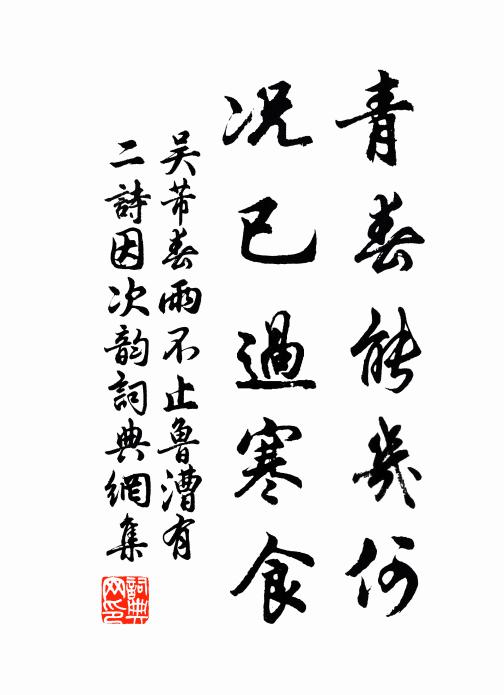 青春能幾何
況已過寒食
吳芾春雨不止魯漕有
二詩因次韵詞典網集
詞典
网印